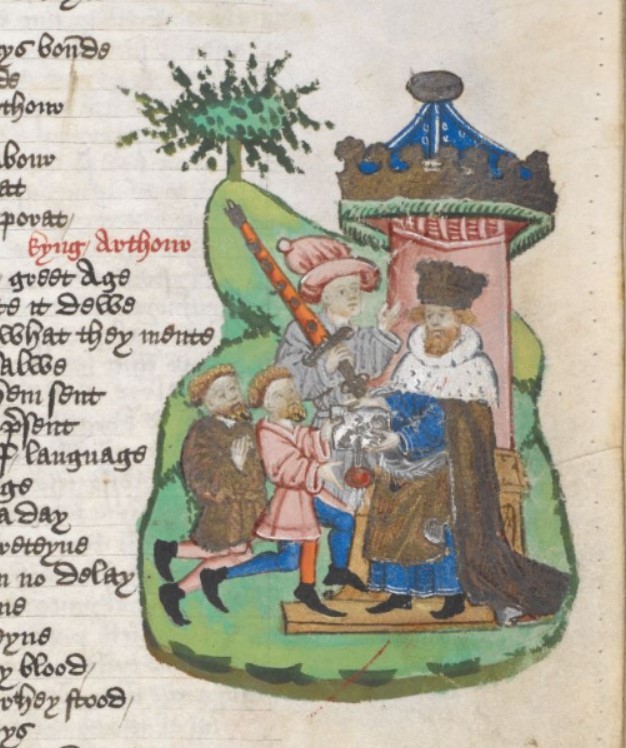 bonde
de
thour
labour
at
porat
kyng Arthour
greet Age
te it dewe
what they mente
Salwe
hem sent
present
language
ge
a day
reteyne
n no delay
ne
eyne
y blood
they stood
ys